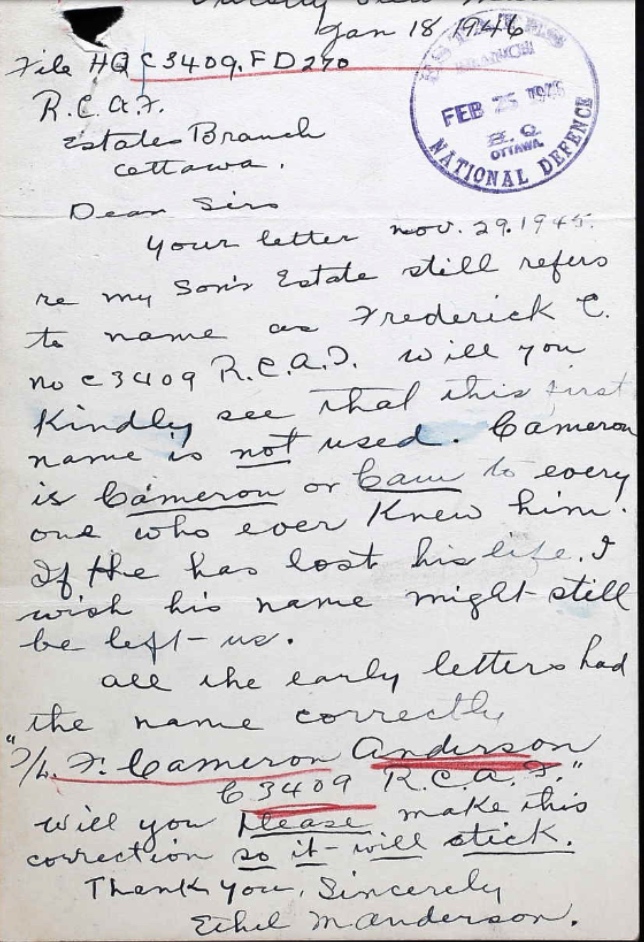 Jan 18 1946
File HQ C3409. F D 270
R.C.A.F.
Estates Branch
Ottawa.
BRANCH
FEB 25 1946
H. Q.
OTTAWA
NATIONAL DEFENCE
Dear Sirs
Your letter Nov. 29. 1945.
re my Son's Estate still refers
to name as Frederick C.
no C3409 R.C.A.F. will you
Kindly see that this first
name is not used. Cameron
is Cameron or Cam to every
one who ever Knew him.
If he has lost his life, I
wish his name might still
be left us.
All the early letters had
the name correctly
"F/L. F. Cameron Anderson
C3409 R.C.A.F."
Will you Please make this
correction so it will stick.
Thank you, Sincerely
Ethel M Anderson.